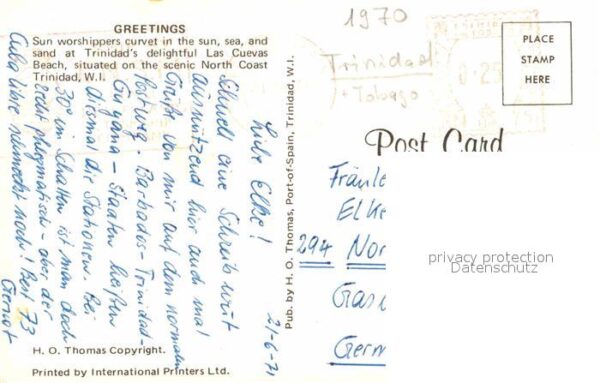 GREETINGS
Sun worshippers curvet in the sun, sea, and
sand at Trinidad's delightful Las Cuevas
Beach, situated on the scenic North Coast
Trinidad, W.I.
21-6-71
Liebe Elke!
Schnell eine Schreib wut
ausnützend hier auch mal
Grüße von mir auf dem normalen
Postweg. Barbados-Trinidad-
Guyana-Staaten heißen
diesmal die Stationen. Bei
30° im Schatten ist man doch
recht phlegmatisch - aber der
Cuba libre schmeckt noch! Best 73
Gernot
H. O. Thomas Copyright.
Printed by International Printers Ltd.
Pub. by H. O. Thomas, Port-of-Spain, Trinidad, W.I.
1970
Trinidad
+ Tobago
0.25
PLACE
STAMP
HERE
Post Card
Fräule
Elke
294 Nor
Gas
Germ
privacy protection
Datenschutz